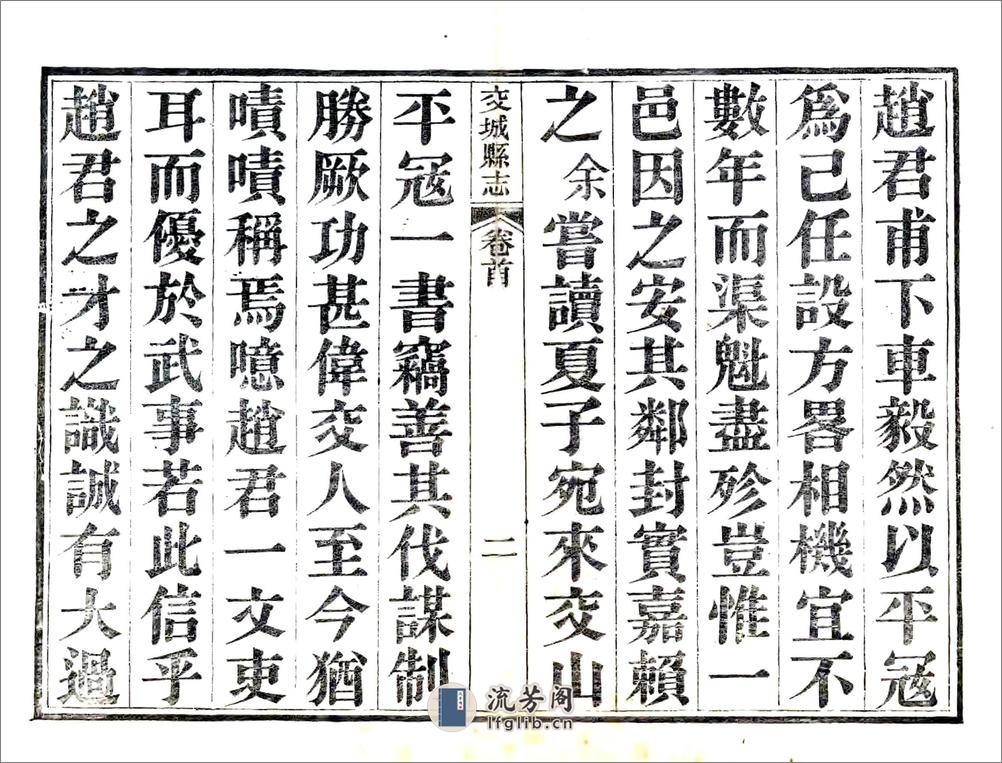 趙君甫下車毅然以平冦
爲己任設方畧相機宜不
數年而渠魁盡殄豈惟一
邑因之安其鄰封實嘉賴
之余嘗讀夏子宛來交山
交城縣志 卷首 二
平冦一書竊善其伐謀制
勝厥功甚偉交人至今猶
嘖嘖稱焉噫趙君一文吏
耳而優於武事若此信乎
趙君之才之識誠有大過
流芳阁
lfglib.cn